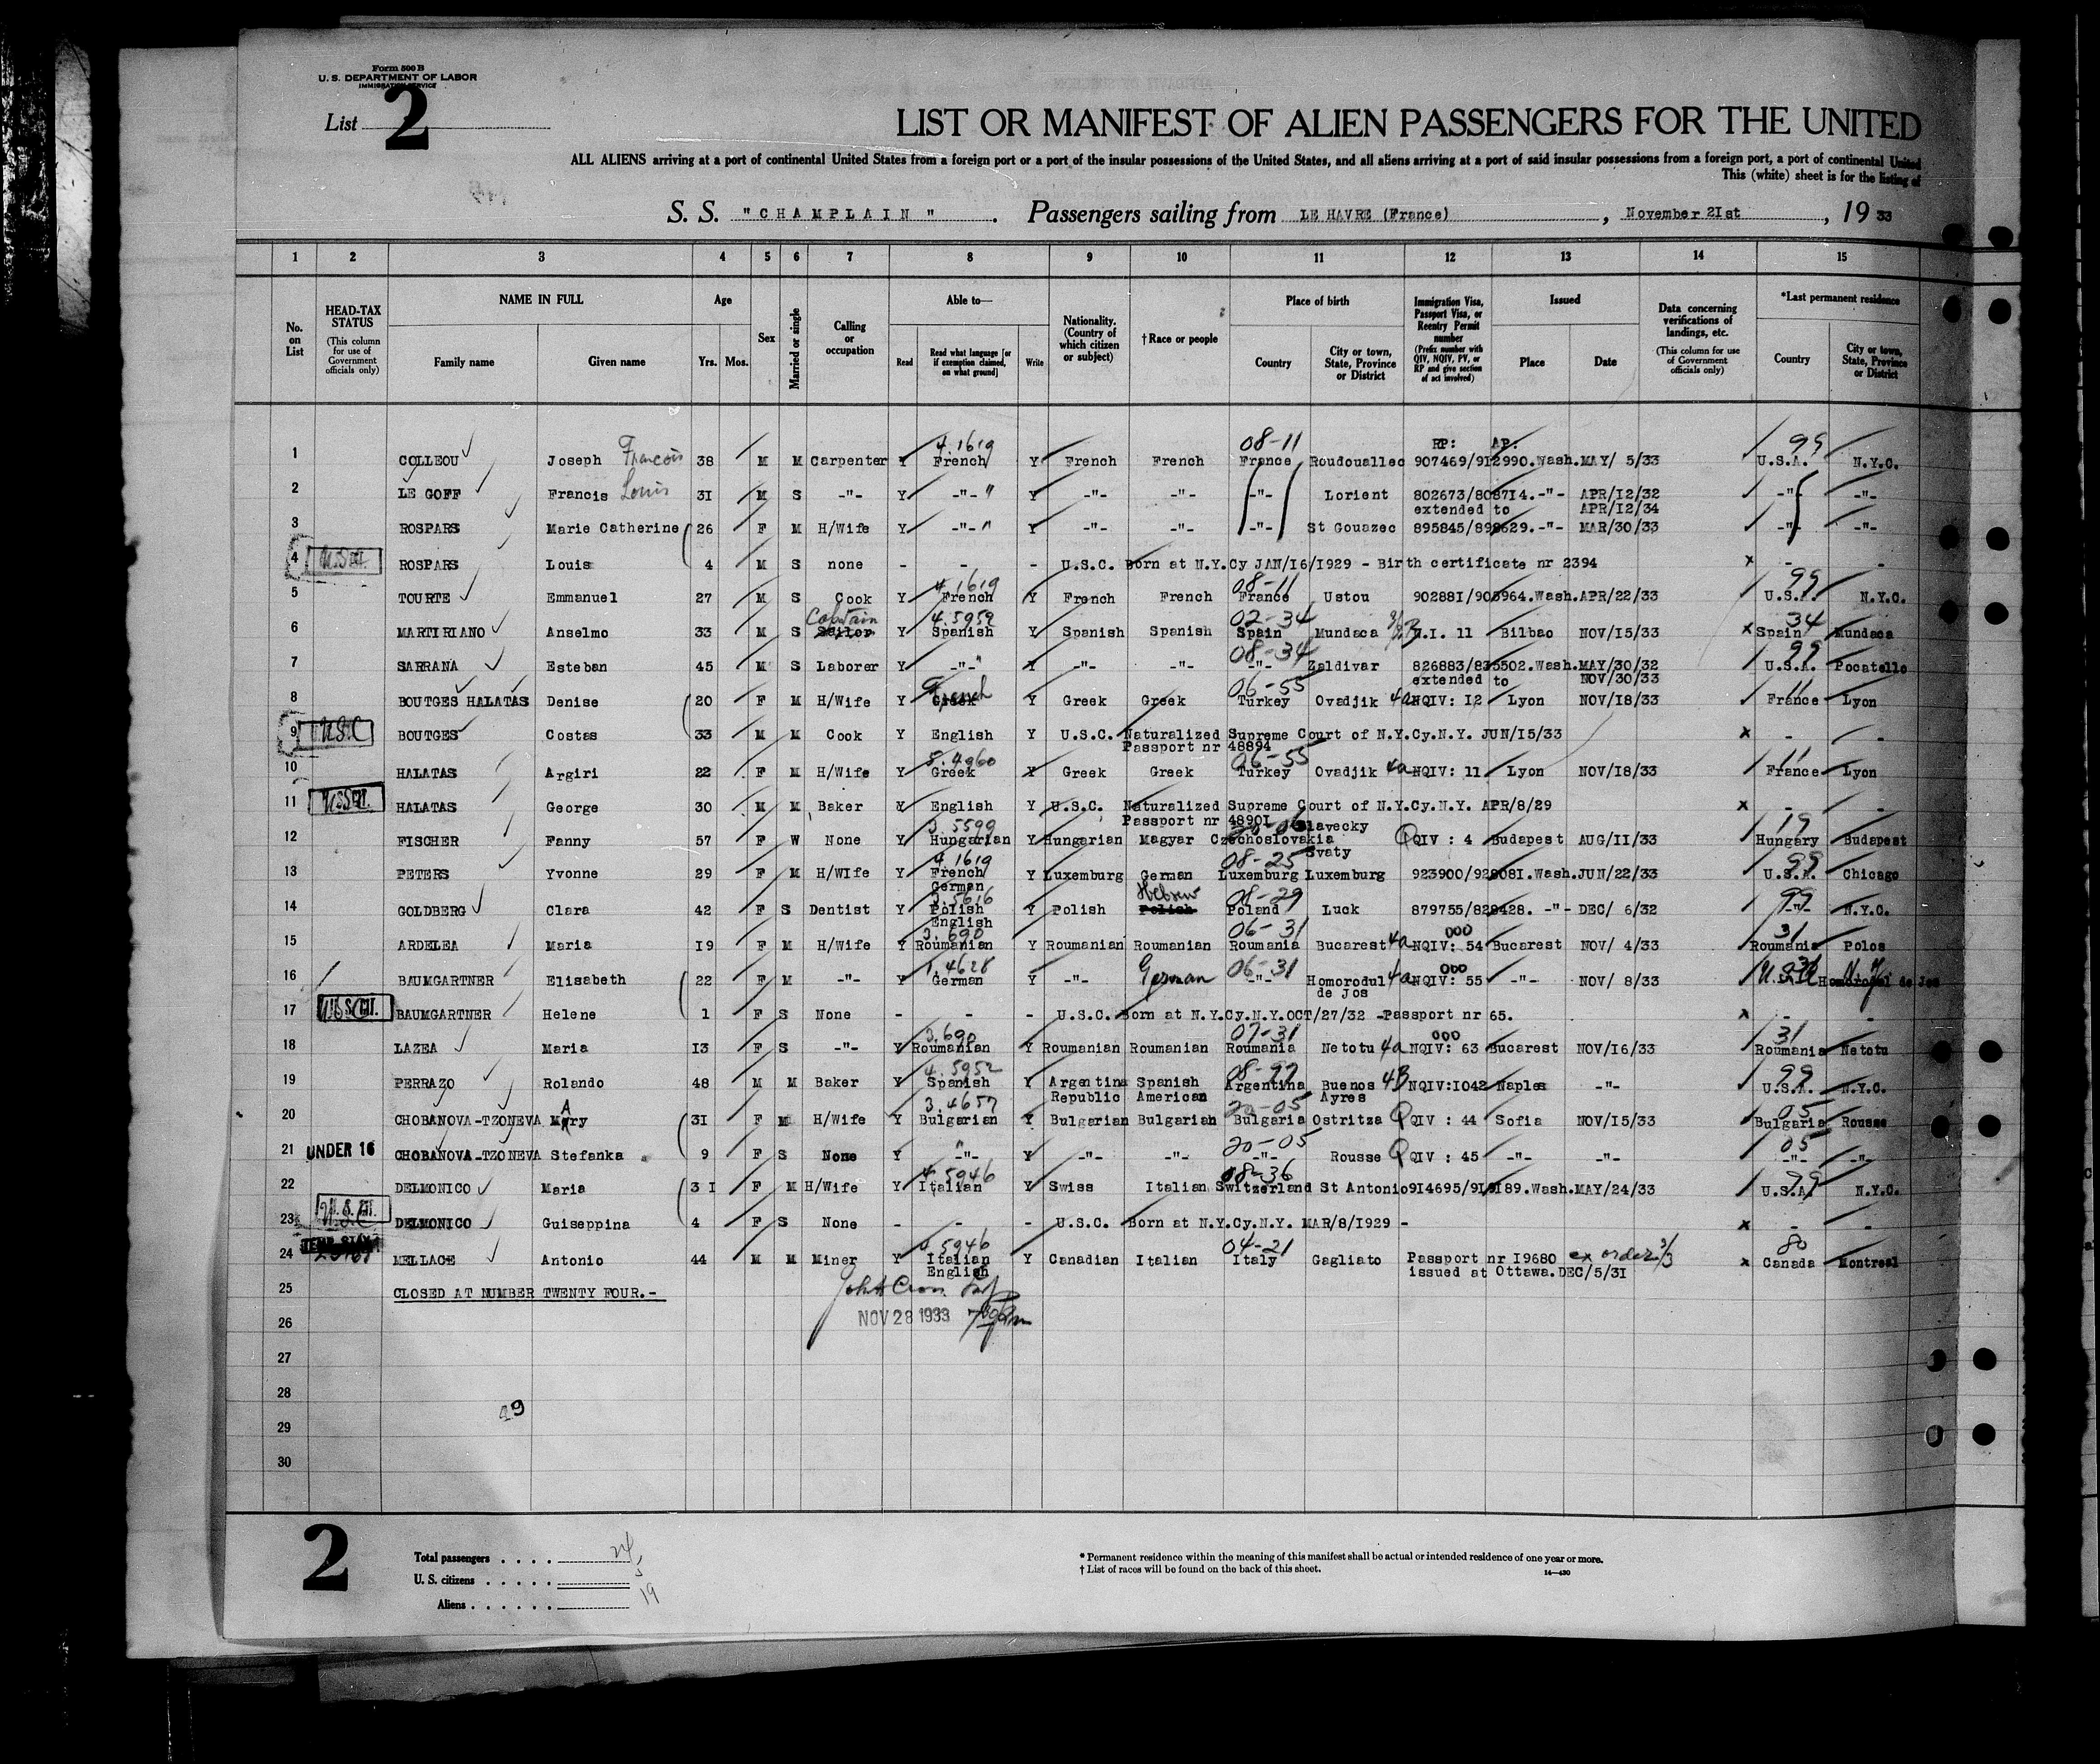 Form 500 B
U. S. DEPARTMENT OF LABOR
IMMIGRATION SERVICE
List 2
LIST OR MANIFEST OF ALIEN PASSENGERS FOR THE UNITED
ALL ALIENS arriving at a port of continental United States from a foreign port or a port of the insular possessions of the United States, and all aliens arriving at a port of said insular possessions from a foreign port, a port of continental United
This (white) sheet is for the listing of
S. S. "CHAMPLAIN". Passengers sailing from LE HAVRE (France), November 21st, 19 33
1 2 3 4 5 6 7 8 9 10 11 12 13 14 15
No. on List
HEAD-TAX STATUS (This column for use of Government officials only)
NAME IN FULL Family name Given name
Age Yrs. Mos.
Sex
Married or single
Calling or occupation
Able to— Read Read what language [or if exemption claimed, on what ground] Write
Nationality. (Country of which citizen or subject)
† Race or people
Place of birth Country City or town, State, Province or District
Immigration Visa, Passport Visa, or Reentry Permit number (Prefix number with QIV, NQIV, PV, or RP and give section of act involved)
Issued Place Date
Data concerning verifications of landings, etc. (This column for use of Government officials only)
*Last permanent residence Country City or town, State, Province or District
4.1619 08-11 RP: AP: 99
1 COLLEOU Joseph Francois 38 M M Carpenter Y French Y French French France Roudouallec 907469/912990.Wash. MAY/ 5/33 U.S.A. N.Y.C.
2 LE GOFF Francis Louis 31 M S -"- Y -"- Y -"- -"- -"- Lorient 802673/808714. -"- APR/12/32 -"- -"-
extended to APR/12/34
3 ROSPARS Marie Catherine 26 F M H/Wife Y -"- Y -"- -"- -"- St Gouazec 895845/898629. -"- MAR/30/33 -"- -"-
4 ROSPARS Louis 4 M S none - - - U.S.C. Born at N.Y.Cy JAN/16/1929 - Birth certificate nr 2394 x - -
4.1619 08-11 99
5 TOURTE Emmanuel 27 M S Cook Y French Y French French France Ustou 902881/905964.Wash. APR/22/33 U.S.A. N.Y.C.
Captain 4.5952 02-34 34
6 MARTIRIANO Anselmo 33 M S Sailor Y Spanish Y Spanish Spanish Spain Mundaca 11 Bilbao NOV/15/33 x Spain Mundaca
08-34 99
7 SARRANA Esteban 45 M S Laborer Y -"- Y -"- -"- -"- Zaldivar 826883/835502.Wash. MAY/30/32 U.S.A. Pocatello
extended to NOV/30/33
French 06-55 11
8 BOUTGES HALATAS Denise 20 F M H/Wife Y Greek Y Greek Greek Turkey Ovadjik 4a NQIV: 12 Lyon NOV/18/33 France Lyon
9 U.S.C BOUTGES Costas 33 M M Cook Y English Y U.S.C. Naturalized Supreme Court of N.Y.Cy.N.Y. JUN/15/33 x - -
Passport nr 48894
8.4960 06-55 11
10 HALATAS Argiri 22 F M H/Wife Y Greek Y Greek Greek Turkey Ovadjik 4a NQIV: 11 Lyon NOV/18/33 France Lyon
11 HALATAS George 30 M M Baker Y English Y U.S.C. Naturalized Supreme Court of N.Y.Cy.N.Y. APR/8/29 x - -
Passport nr 48901
3.5599 20-06 Slavecky 19
12 FISCHER Fanny 57 F W None Y Hungarian Y Hungarian Magyar Czechoslovakia Svaty Q QIV : 4 Budapest AUG/11/33 Hungary Budapest
4.1619 08-25 99
13 PETERS Yvonne 29 F M H/WIfe Y French German Y Luxemburg German Luxemburg Luxemburg 923900/928081.Wash. JUN/22/33 U.S.A. Chicago
3.5616 Hebrew 08-29 99
14 GOLDBERG Clara 42 F S Dentist Y Polish English Y Polish Polish Poland Luck 879755/828428. -"- DEC/ 6/32 -"- N.Y.C.
3.690 06-31 000 31
15 ARDELEA Maria 19 F M H/Wife Y Roumanian Y Roumanian Roumanian Roumania Bucarest 4a NQIV: 54 Bucarest NOV/ 4/33 Roumania Polos
1.4628 06-31 000
16 BAUMGARTNER Elisabeth 22 F M -"- Y German Y -"- German -"- Homorodul de Jos 4a NQIV: 55 -"- NOV/ 8/33 U.S.A Homorodul de Jos N.Y.
17 BAUMGARTNER Helene 1 F S None - - - U.S.C. Born at N.Y.Cy.N.Y.OCT/27/32 -Passport nr 65. x - -
3.690 07-31 000 31
18 LAZEA Maria 13 F S -"- Y Roumanian Y Roumanian Roumanian Roumania Netotu 4a NQIV: 63 Bucarest NOV/16/33 Roumania Netotu
4.5952 08-97 99
19 PERRAZO Rolando 48 M M Baker Y Spanish Y Argentina Republic Spanish American Argentina Buenos Ayres 4B NQIV:1042 Naples -"- U.S.A. N.Y.C.
3.4657 20-05 05
20 CHOBANOVA-TZONEVA Mary A 31 F M H/Wife Y Bulgarian Y Bulgarian Bulgarian Bulgaria Ostritza Q QIV : 44 Sofia NOV/15/33 Bulgaria Rousse
20-05 05
21 UNDER 16 CHOBANOVA-TZONEVA Stefanka 9 F S None Y -"- Y -"- -"- -"- Rousse Q QIV : 45 -"- -"- -"- -"-
4.5946 08-36 99
22 DELMONICO Maria 31 F M H/Wife Y Italian Y Swiss Italian Switzerland St Antonio 914695/919189.Wash. MAY/24/33 U.S.A. N.Y.C.
23 U.S.C DELMONICO Guiseppina 4 F S None - - - U.S.C. Born at N.Y.Cy.N.Y. MAR/8/1929 - x - -
TEMP STAY 4.5946 04-21 80
24 MELLACE Antonio 44 M M Miner Y Italian English Y Canadian Italian Italy Gagliato Passport nr 19680 issued at Ottawa.DEC/5/31 ex order 3/3 x Canada Montreal
25 CLOSED AT NUMBER TWENTY FOUR.-
26 NOV 28 1933
27
28
49
29
30
2
Total passengers . . . . 24
U. S. citizens . . . . . 5
Aliens . . . . . . 19
* Permanent residence within the meaning of this manifest shall be actual or intended residence of one year or more.
† List of races will be found on the back of this sheet.
14—430